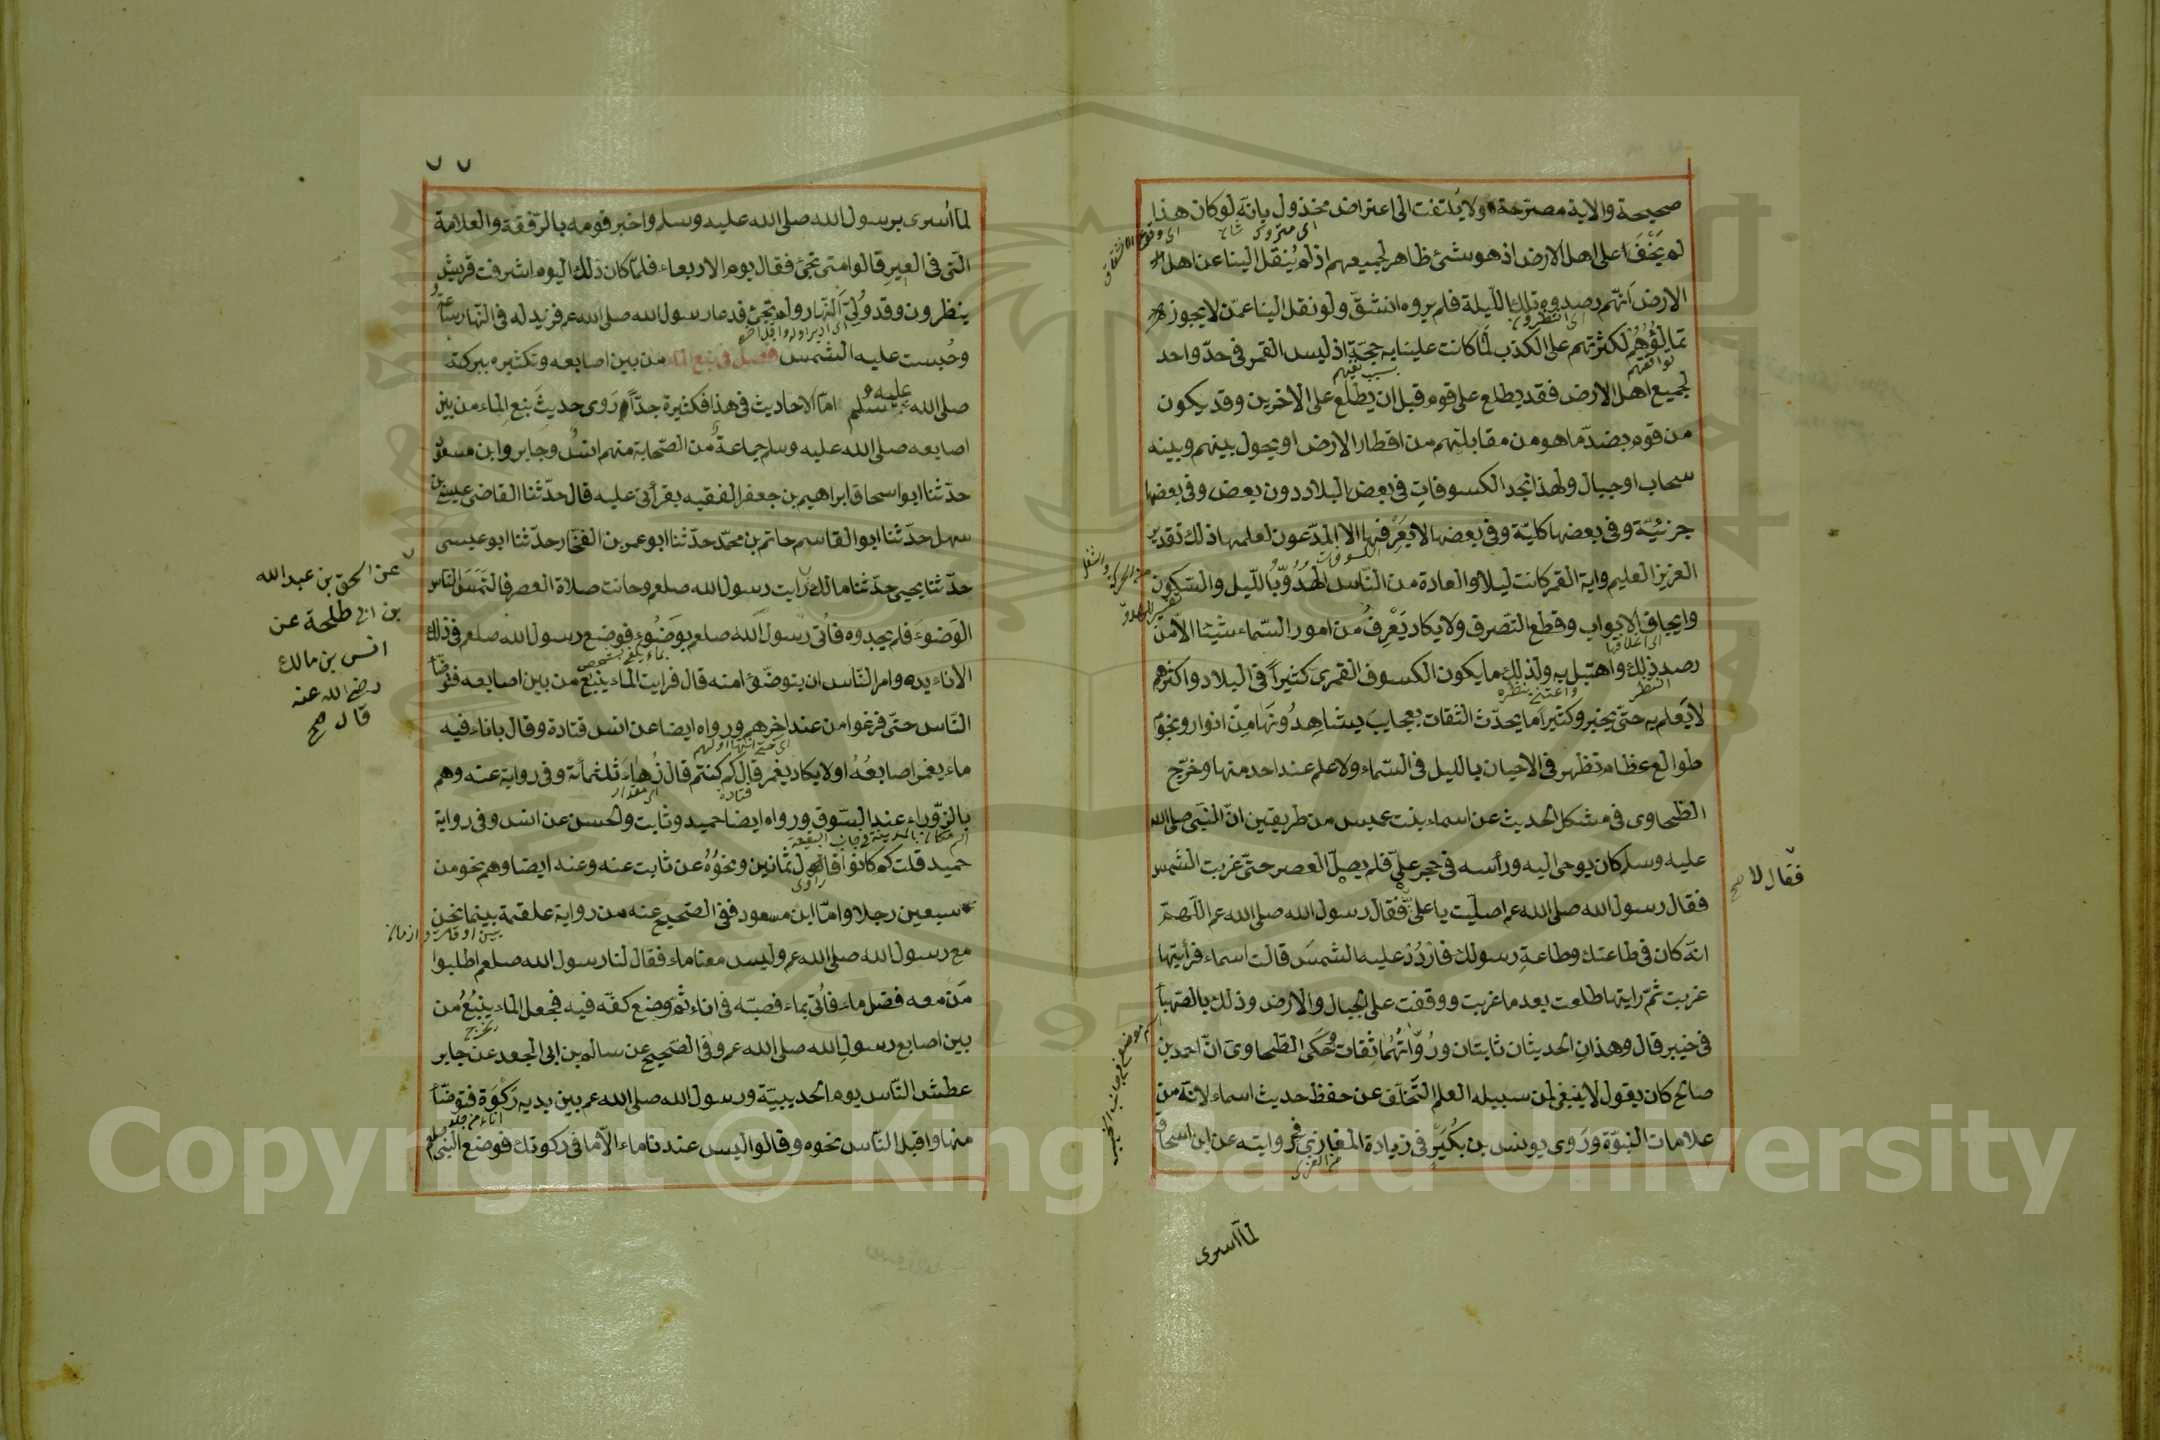 صحيحة والاية مصرّحة ولا يلتفت الى اعتراض مخذول بانّه لو كان هذا
لم يَخْفَ على اهل الارض اذ هو شئ ظاهر لجميعهم اذ لم يُنقل الينا عن اهل
الارض انّهم رصدوه تلك الليلة فلم يروه انشقّ ولو نقل الينا عمّن لا يجوز
تمالؤُهُم لكثرتهم على الكذب لَما كانت علينا به حجّة اذ ليس القمر فى حدّ واحد
لجميع اهل الارض فقد يطلع على قوم قبل ان يطلع على الاخرين وقد يكون
من قوم بضدّ ما هو من مقابلتهم من اقطار الارض او يحول بينهم وبينه
سحاب او جبال ولهذا نجد الكسوفات فى بعض البلاد دون بعض وفى بعضها
جزئيّة وفى بعضها كليّة وفى بعضها لا يَعْرِفها الا المدّعون لعلمها ذلك تقدير
العزيز العليم واية القمر كانت ليلا والعادة من النّاس الهُدُوّ بالليل والسّكون
وايجاف الابواب وقطع التصّرف ولا يكاد يَعْرِفُ من امور السّماء شيئا الّا من
رصد ذلك واهتبل به ولذلك ما يكون الكسوف القمرى كثيراً فى البلاد واكثرهم
لا يَعلم به حتّى يخبر وكثيراً ما يحدّث الثقات بعجايبَ يشاهدُونَها من انوار ونجوم
طوالع عظام تظهر فى الاحيان بالليل فى السّماء ولا علم عند احد منها وخرّج
الطّحاوى فى مشكل الحديث عن اسماء بنت عميس من طريقين انّ النّبى صلى الله
عليه وسلم كان يوحى اليه ورأسه فى حجر علىّ فلم يصلّ العصر حتّى غربت الشمس
فقال رسول الله صلى الله عم اصلّيت يا علىّ فقال رسول الله صلى الله عم اللّهمّ
انّه كان فى طاعتك وطاعةِ رسولك فارْدُدْ عليه الشمسَ قالت اسماء فرأيتها
غربت ثمّ رايتها طلعت بعد ما غربت ووقفت على الجبال والارض وذلك بالصّهباء
فى خيبر قال وهذان الحديثان ثابتان ورُوّاتُهُما ثِقات وحَكَى الطّحاوى انّ احمد بن
صالح كان يقول لا ينبغى لمن سبيله العلم التّخلّف عن حفظ حديث اسماء لانّه من
علامات النبوّة ورَوى يونس بن بكَيرٍ فى زيادة المغازى فى روايته عن ابن اسحاق
فقال لا صح
لمّا اسرى
لمّا اُسرى برسول الله صلى الله عليه وسلم واخبر قومه بالرّفقة والعلامة
الّتى فى العير قالوا متى تجئ فقال يوم الاربعاء فلمّا كان ذلك اليوم اشرفت قريش
ينظرون وقد وُلِّىَ النّهار ولم تجئ فدعا رسول الله صلى الله عم فزيد له فى النّهار ساعة
وحُبست عليه الشمس فصل فى نبع الماء من بين اصابعه وتكثيره ببركته
صلى الله عليه وسلم امّا الاحاديث فى هذا فكثيرة جدّاً رَوى حديثَ نبع الماء من بين
اصابعه صلى الله عليه وسلم جماعةٌ من الصّحابة منهم انسٌ وجابر وابن مسعود
حدّثنا ابو اسحاق ابراهيم بن جعفر الفقيه بقرأتى عليه قال حدّثنا القاضى عيسى بن
سهل حدّثنا ابو القاسم حاتم بن محمّد حدّثنا ابو عمر بن الفخّار حدّثنا ابو عيسى
حدّثنا يحيى حدّثنا مالك رايت رسول الله صلعم وحانت صلاة العصر فالتَمَسَ النّاس
الوَضوءَ فلم يجدوه فاُتى رسول الله صلعم بوَضُوءٍ فوضع رسول الله صلعم فى ذلك
الاناء يده وامر النّاس ان يتوضّؤا منه قال فرايت الماء ينبُع من بين اصابعه فتوضّأ
النّاس حتّى فرغوا من عند اخرهم ورواه ايضا عن انس قتادة وقال باناء فيه
ماء يغمر اصابعُهُ او لا يكاد يغمر قال كم كنتم قال زُهاءَ ثلثمأئة وفى رواية عنه وهم
بالزّوراء عند السّوق ورواه ايضا حميد وثابت والحسن عن انس وفى رواية
حميد قلت كم كانوا قال ثمانين ونحوُهُ عن ثابت عنه وعنه ايضا وهم نحو من
سبعين رجلا وامّا ابن مسعود ففى الصّحيح عنه من رواية علقمة بينما نحن
مع رسول الله صلى الله عم وليس معنا ماء فقال لنا رسول الله صلعم اطلبوا
مَن معه فضل ماء فاُتى بماء فصبّه فى اناء ثم وضع كفّه فيه فجعل الماء يَنبُعُ من
بين اصابع رسول الله صلى الله عم وفى الصّحيح عن سالم بن ابى الجعد عن جابر
عطش النّاس يوم الحديبيّة ورسول الله صلى الله عم بين يديه رَكْوَة فتوضّأ
منها واقبل النّاس نحوه وقالوا ليس عندنا ماء الّا ما فى ركوتك فوضع النبى صلعم
عن اسحق بن عبد الله
بن ابى طلحة عن
انس بن مالك
رضى الله عنه
قال صح
Copyright © King Saud University